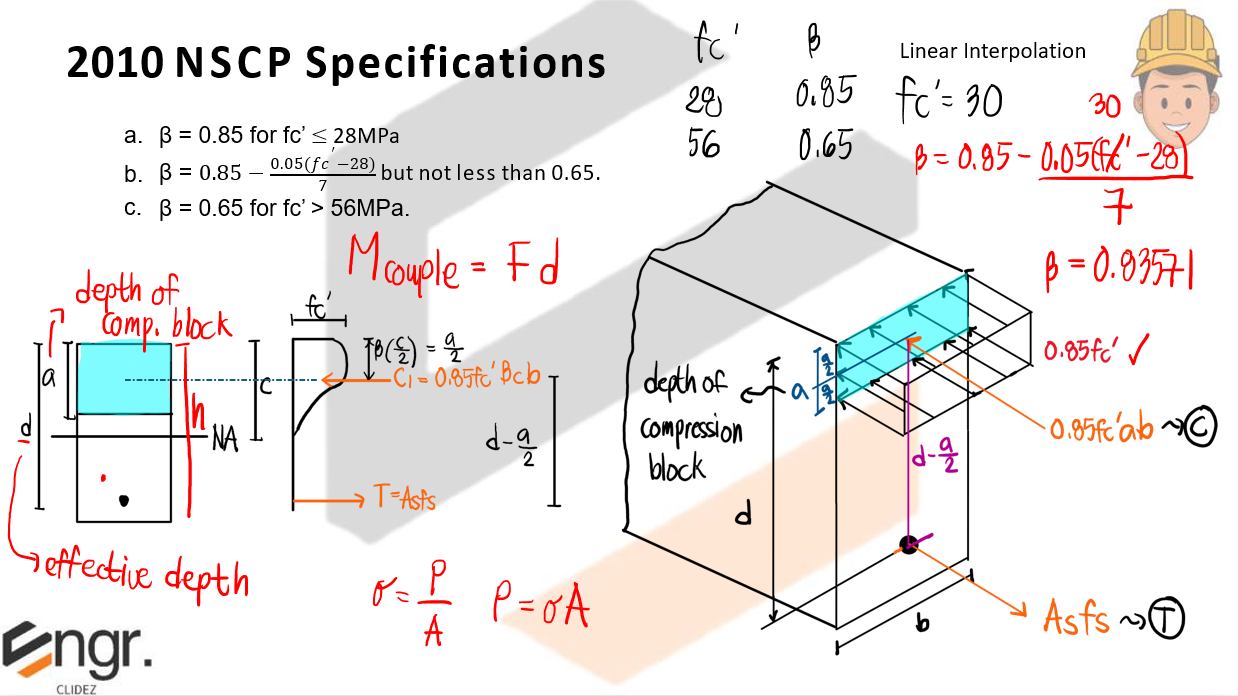 2010 NSCP Specifications
a. β = 0.85 for fc’ ≤ 28MPa
b. β = 0.85 − 0.05(fc′−28)/7 but not less than 0.65.
c. β = 0.65 for fc’ > 56MPa.
fc' β
28 0.85
56 0.65
Linear Interpolation
fc' = 30
30
β = 0.85 - 0.05(fc' - 28)/7
β = 0.83571
Mcouple = Fd
depth of
comp. block
a
d
h
NA
effective depth
fc'
c
β(c/2) = a/2
C1 = 0.85fc'βcb
d - a/2
T = Asfs
σ = P/A P = σA
depth of
compression
block
a
a/2
a/2
d
d - a/2
b
0.85fc' ✓
0.85fc'ab ⤳ C
Asfs ⤳ T
Engr.
CLIDEZ